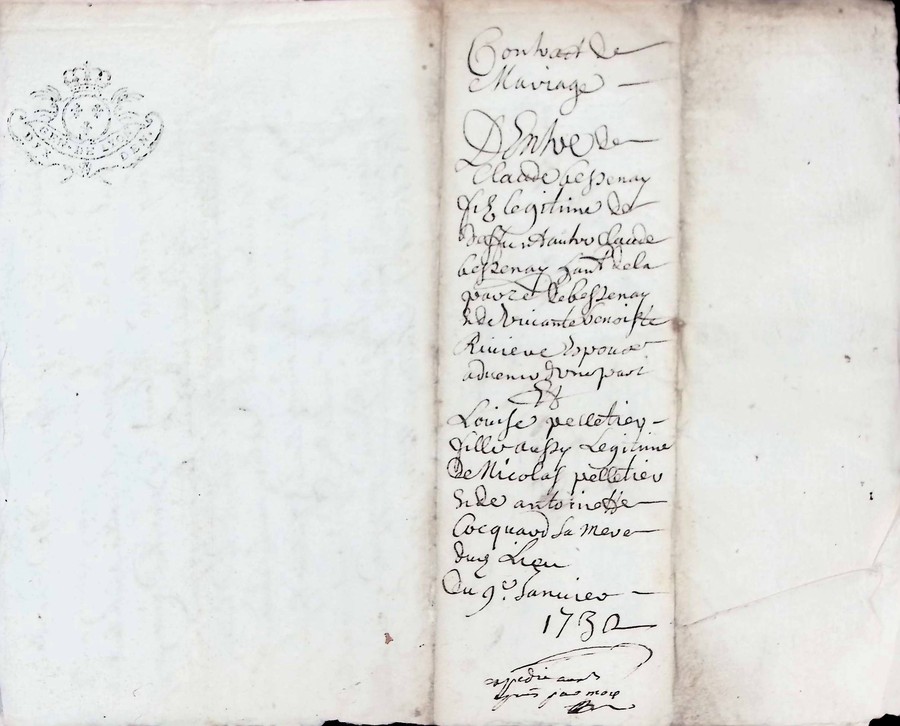 GEN. DE LYON
Contract de
Mariage
D'Entre de
Claude bessenay
fils legitime de
deffunt autre Claude
bessenay hant de la
parr.e de bessenay
& de vivante benoiste
Riviere Espoux
advenir d'une part
Et
Louise pelletier
fille aussy Legitime
De Nicolas pelletier
& de antoinette
Cocquard sa mere
dud Lieu
Du 9.e Janvier
1732
expedie
par moy